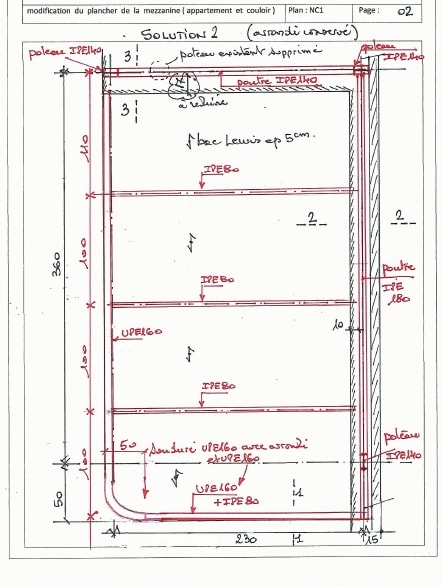 modification du plancher de la mezzanine ( appartement et couloir )
Plan : NC1
Page : 02
SOLUTION 2 (arrondi conservé)
poteau IPE140
3
poteau existant supprimé
poteau
IPE140
poutre IPE140
3
à réduire
bac Lewis ep 5cm.
110
IPE80
2
2
360
100
IPE80
poutre
IPE
180
UPE160
10
100
IPE80
50
soudure UPE160 avec arrondi
et UPE160
poteau
IPE140
100
UPE160
+ IPE80
1
50
230
1
15